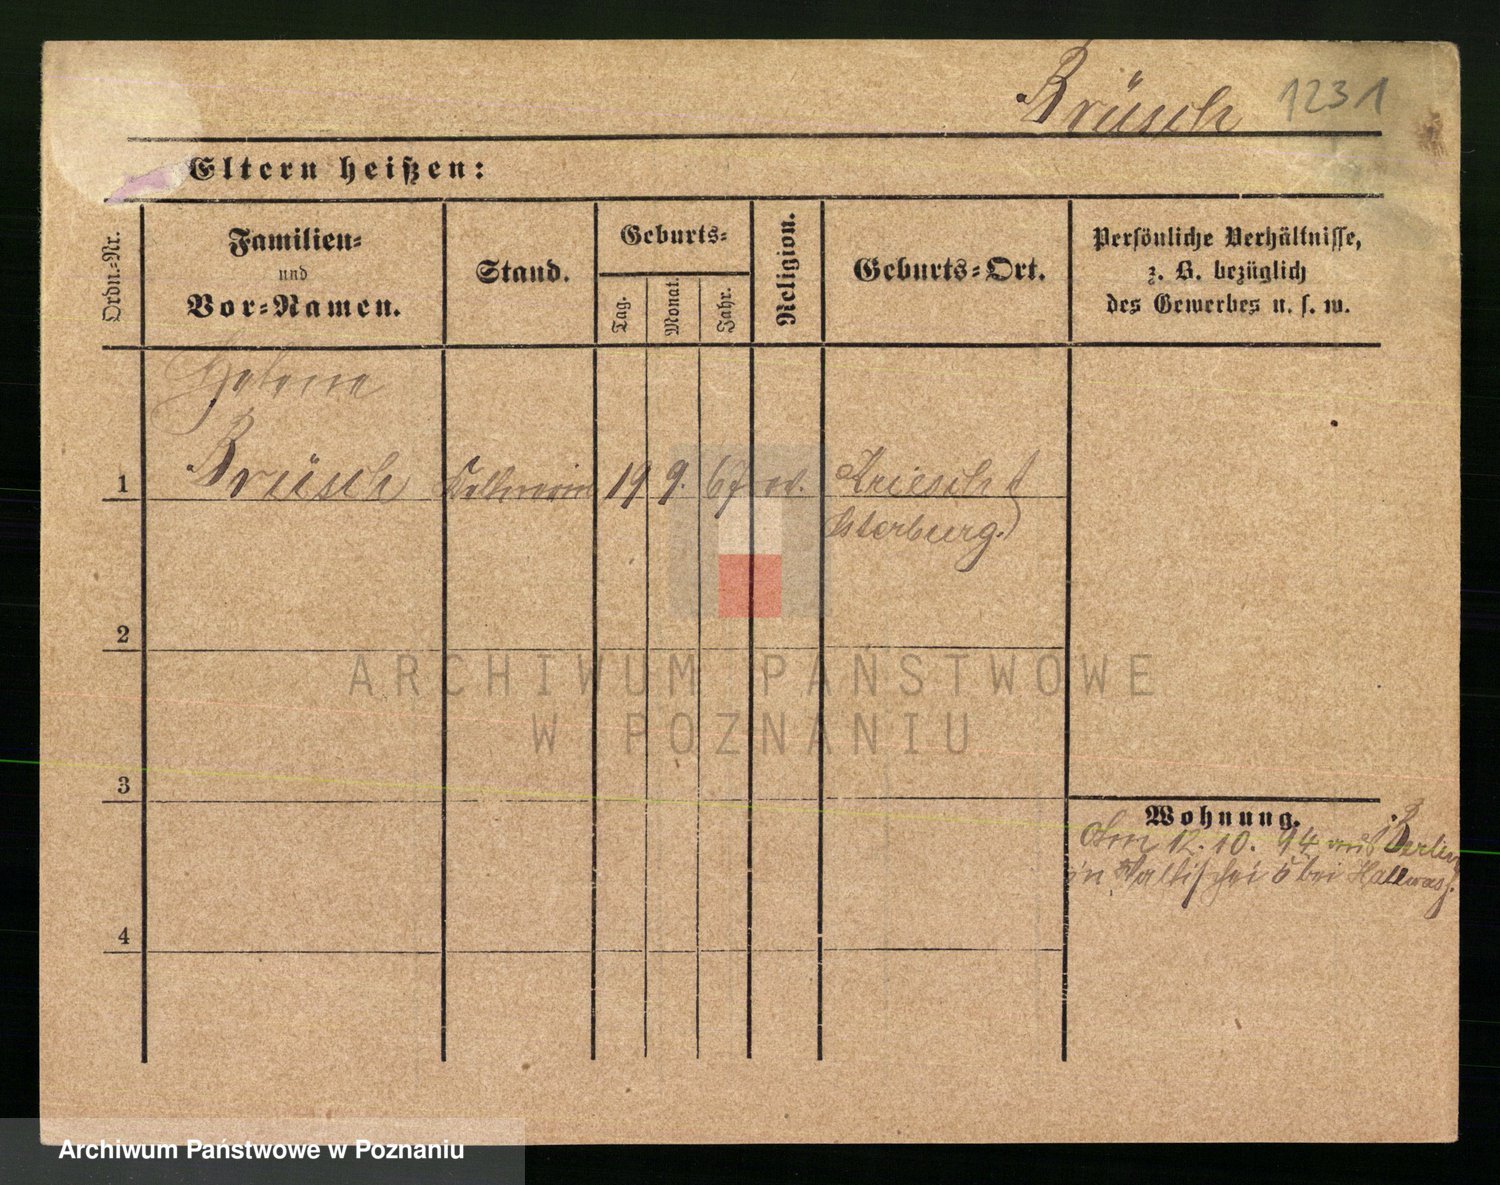 Brüsch 1231
Eltern heißen:
Ordn.-Nr.
Familien-
und
Vor-Namen.
Stand.
Geburts-
Tag.
Monat.
Jahr.
Religion.
Geburts-Ort.
Persönliche Verhältnisse,
z. B. bezüglich
des Gewerbes u. s. w.
Helene
1 Brüsch Kellnerin 19 9. 67 ev.
Osterburg.)
2
3
4
Wohnung.
Am 12. 10. 94 aus Berlin
in Wallischei 5 bei
ARCHIWUM PAŃSTWOWE
W POZNANIU
Archiwum Państwowe w Poznaniu